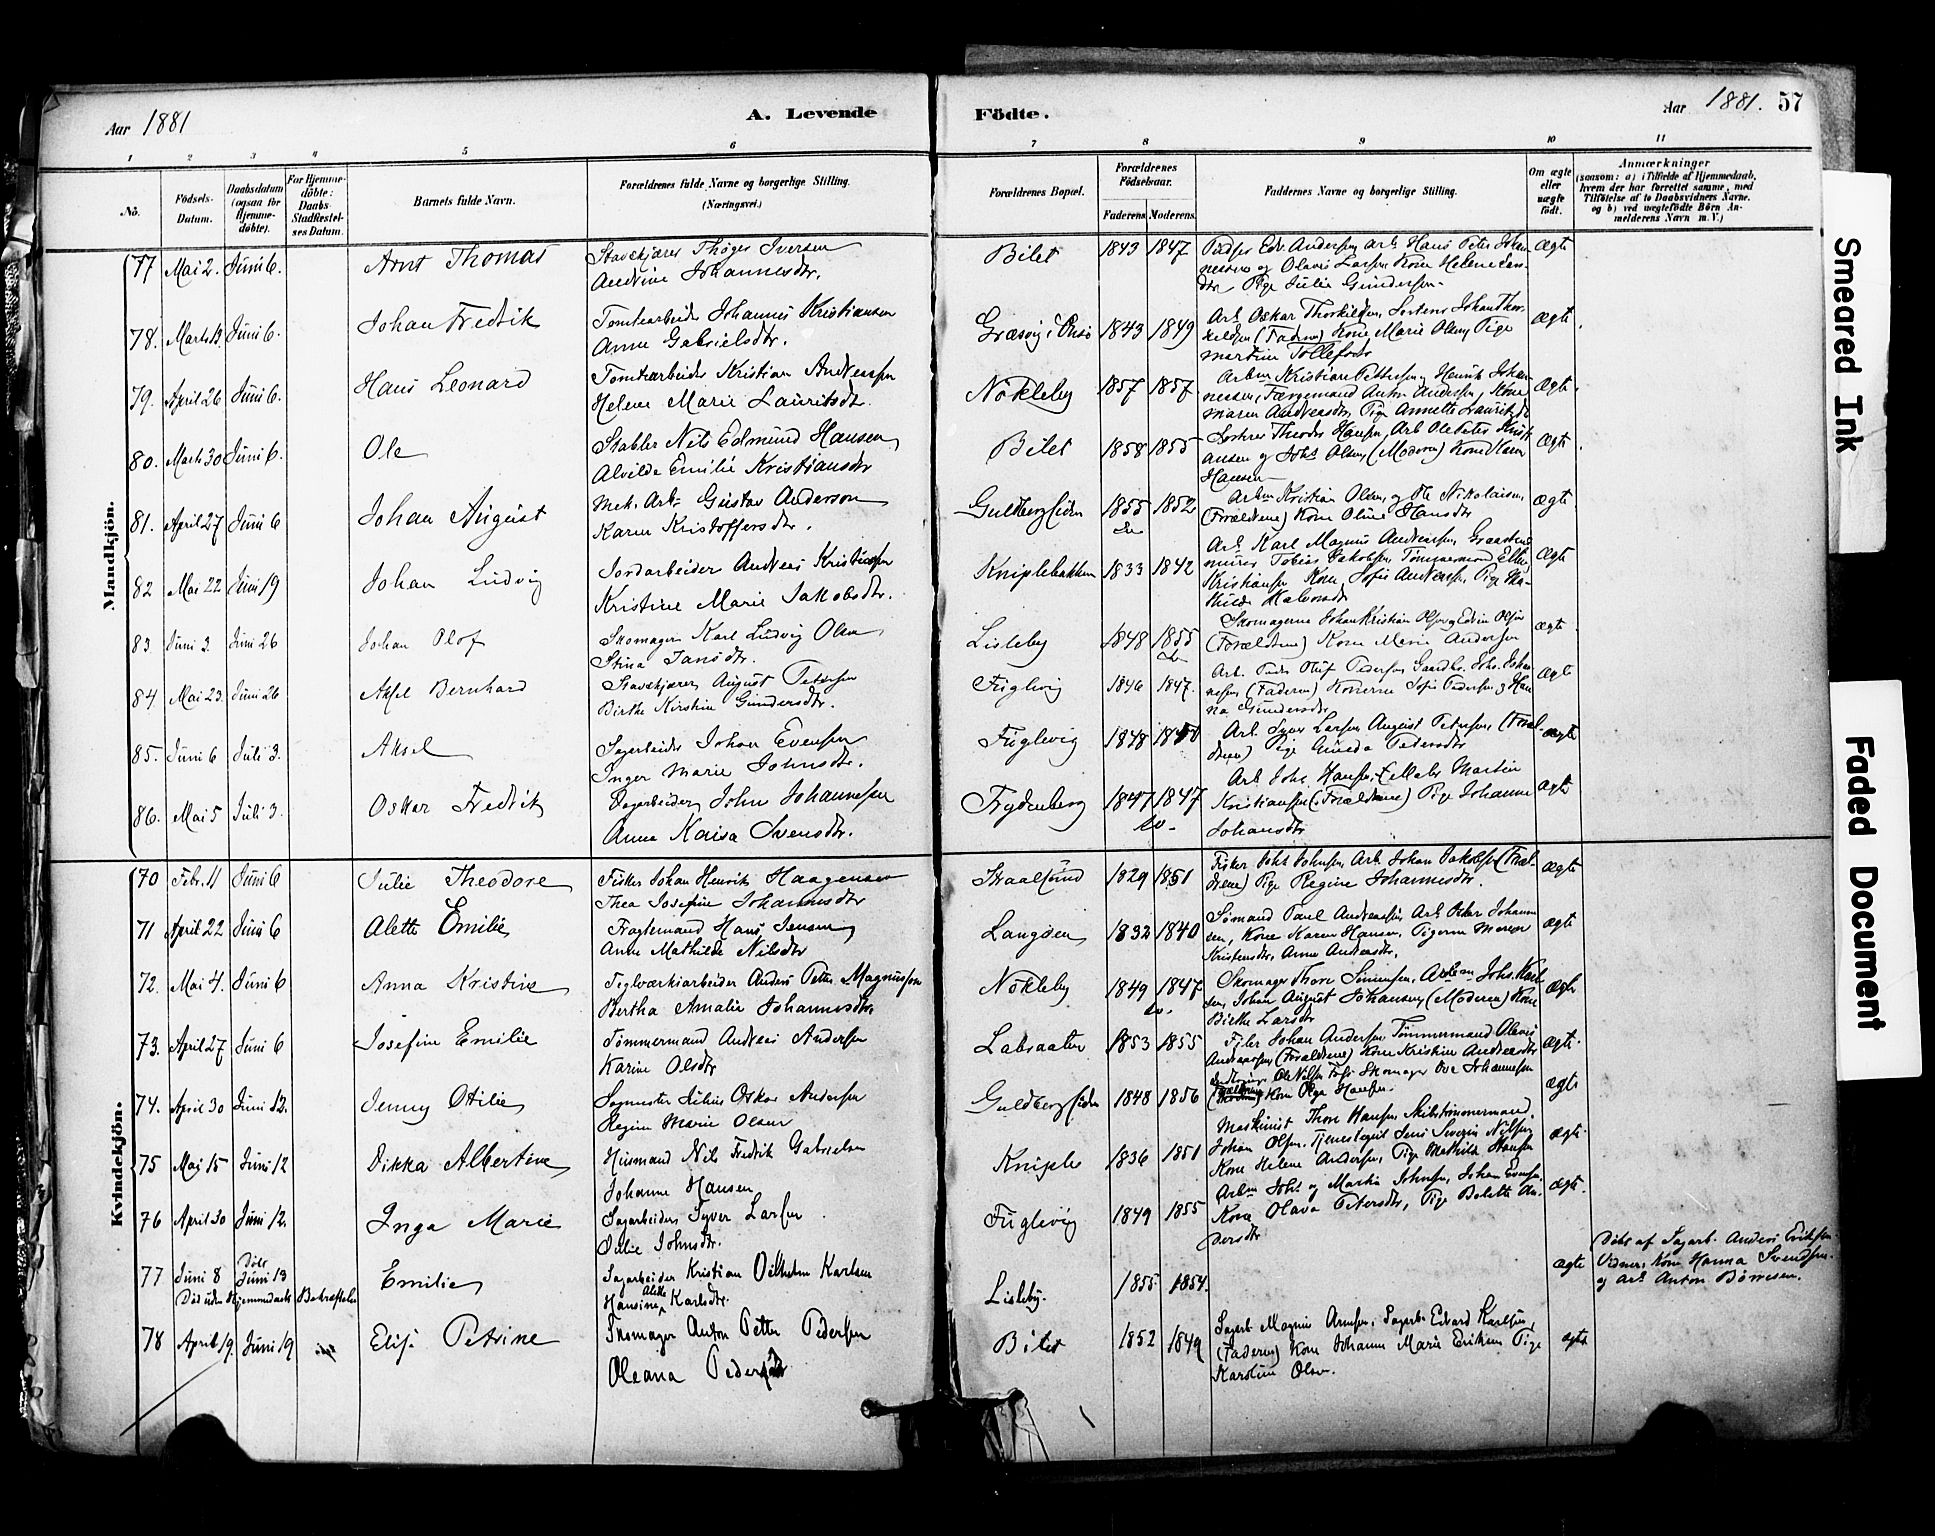 Aar 1881
A. Levende
Födte.
Aar 1881. 57
1 2 3 4 5 6 7 8 9 10 11
No.
Födsels-Datum.
Daabsdatum (ogsaa for Hjemme-döbte).
For Hjemme-döbte: Daabs-Stadfæstel-ses Datum.
Barnets fulde Navn.
Forældrenes fulde Navne og borgerlige Stilling. (Næringsvei.)
Forældrenes Bopæl.
Forældrenes Födselsaar.
Faderens. Moderens.
Faddernes Navne og borgerlige Stilling.
Om ægte eller uægte födt.
Anmærkninger (saasom: a) i Tilfælde af Hjemmedaab, hvem der har forrettet samme, med Tilföielse af to Daabsvidners Navne. og b) ved uægtefödte Börn An-melderens Navn m. V.)
Mandkjön.
77 Mai 2. Juni 6. Arnt Thomas
Thøger Iversen
Andrine Johannesdtr.
Bilet 1843 1847
Edv. Andersen, Arb. Hans Peter Johan-
nessen og Olavis Larsen, Kone Helene
Pige Julie Gundersen
Ægte
78. Marts Juni 6. Johan Fredrik
Tomtearbeider Johannes Kristiansen
Anne Gabrielsdtr.
Græsvig i Onsø 1843 1849
Arb. Oskar Thorkildsen, Johan Thor-
kildsen (Faderen) Kone Marie Olsen, Pige
Martine Tollefsdr
Ægte
79. April 26 Juni 6. Hans Leonard
Tomtearbeider Kristian Andreassen
Helene Marie Lauritsdt.
Nökleby 1857 1857
Arbm Kristian Pettersen, Henrik Johan-
nessen, Færgemand Anton Andersen, Kone
Maren Andreasdtr, Pige Annette Lauritzdt
Ægte
80. Marts 30 Juni 6. Ole
Stabler Nils Edmund Hansen
Alvilde Emilie Kristiansdtr
Bilet 1858 1855
Theodor Hansen, Arb Ole Peter Kristi-
ansen og Johs Olsen, (Moderen) Kone Karen
Hansen
Ægte
81. April 27 Juni 6 Johan August
Mek. Arb. Gustav Anderson
Karen Kristoffersdtr.
Guldbergsiden 1855 1852
Arbm Kristian Olsen og Ole Nikolaisen,
(Forældrene) Kone Oline Hansdtr
Ægte
82 Mai 22 Juni 19 Johan Ludvig
Jordarbeider Andreas Kristiansen
Kristine Marie Jakobsdtr.
Kniplebakken 1833 1842
Arb. Karl Magnus Andreassen, Graasteens-
murer Tobias Jakobsen, Tömmermand
Kristiansen Kone Sofie Andersen, Pige Ma-
thilde Halvorsdt
Ægte
83. Juni 3 Juni 26 Johan Olof
Skomager Karl Ludvig Olsen
Stina Jansdtr.
Lisleby 1848 1855
Skomagerne Johan Kristian Olsen og Edvin Olsen
(Forældrene) Kone Marie Andersen
ægte
84. Mai 23. Juni 26 Aksel Bernhard
Stavskjærer August Petersen
Birthe Kirstine Gundersdtr.
Fuglevig 1846 1847.
Arb. Peder Oluf Pedersen, Gaardbr. Johs. Johan-
nesen (Faderen) Konerne Sofie Pedersen og Han-
na Gundersdtr
ægte
85. Juni 6 Juli 3. Aksel
Sagarbeider Johan Evensen
Inger Marie Johnsdtr.
Fuglevig 1848 1850
Arb. Syver Larsen, August Petersen, (Foræl-
drene) Pige Gunda Pedersdtr
ægte
86. Mai 5 Juli 3. Oskar Fredrik
Sagarbeider John Johannesen
Anna Kaisa Svensdtr.
Frydenberg 1847 1847
Arb Johs. Hansen, Maler Martin
Kristiansen (Forældrene) Pige Johanne
Johansdtr
ægte
Kvindekjön.
70 Febr. 11 Juni 6 Julie Theodore
Fisker Johan Henrik Haagensen
Thea Josefine Johannesdtr
Skaalsund 1829 1851
Fisker Johs Johnsen, Arb. Johan Jakobsen (Foræl-
drene) Pige Regine Johannesdtr.
Ægte
71 April 22 Juni 6 Alette Emilie
Fragtemand Hans Jensen
Anne Mathilde Nilsdtr
Langøen 1832 1840
Sømand Paul Andreassen, Arb. Peter Johann-
sen, Kone Karen Hansen, Pigerne Maren
Kristensdtr, Anne Andersdtr.
ægte
72. Mai 4. Juni 6 Anna Kristine
Teglværksarbeider Anders Petter Magnussen
Bertha Amalia Johannesdtr.
Nökleby 1849 1847
Skomager Thore Simensen, Arbm Johs. Karl-
sen, Johan August Johansen, (Moderen) Kone
Birthe Larsdtr
ægte
73. April 27 Juni 6 Josefine Emilie
Tömmermand Andreas Andersen
Karine Olsdtr
Labraaten 1853 1855
Filer Johan Andersen Tömmermand Olavis
Andreassen (Forældrene) Kone Kristine Andreasdtr
ægte
74. April 30 Juni 12. Jenny Otilie
Sagmester Julius Oskar Andersen
Regine Marie Olsen
Guldbergsiden 1848 1856
Ole Nilsen Skomager Ove Johannesen
Kone Olga Hansen.
ægte
75 Mai 15 Juni 12 Dikka Albertine
Husmand Nils Fredrik Gabrielsen
Johanne Hansen
Kniple 1836 1851
Maskinist Thore Hansen, Skibstömmermand
Johan Olsen, Tjenestegut Jens Severin Nilsen
Kone Helene Andersen, Pige Mathilde Hansen
ægte
76 April 30 Juni 12. Inga Marie
Sagarbeider Syver Larsen
Julie Johnsdtr.
Fuglevig 1849 1855
Arbm Johs og Martin Johnsen, Johan Evensen
Kone Olava Petersdtr, Pige Bolette An-
dersdtr
ægte.
77 Juni 8 Döbt Juni 13 Emilie
Död uden Hjemmedaabs Bekræftelse
Sagarbeider Kristian Vilhelm Karlsen
Hansine Alette Karlsdtr.
Lisleby. 1855 1854.
ægte
Döbt af Sagarb. Anders Eriksen
Vidner, Kone Hanna Svendsen
og Arb. Anton Börresen.
78 April 19 Juni 19 Elise Petrine
Skomager Anton Petter Pedersen
Oleana Pedersdtr
Bilet 1852 1849
Sagarb Magnus Arnesen, Sagarb. Edvard Karlsen,
(Faderen) Kone Johanne Marie Eriksen Pige
Karoline Olsen.
ægte
Smeared Ink
Faded Document